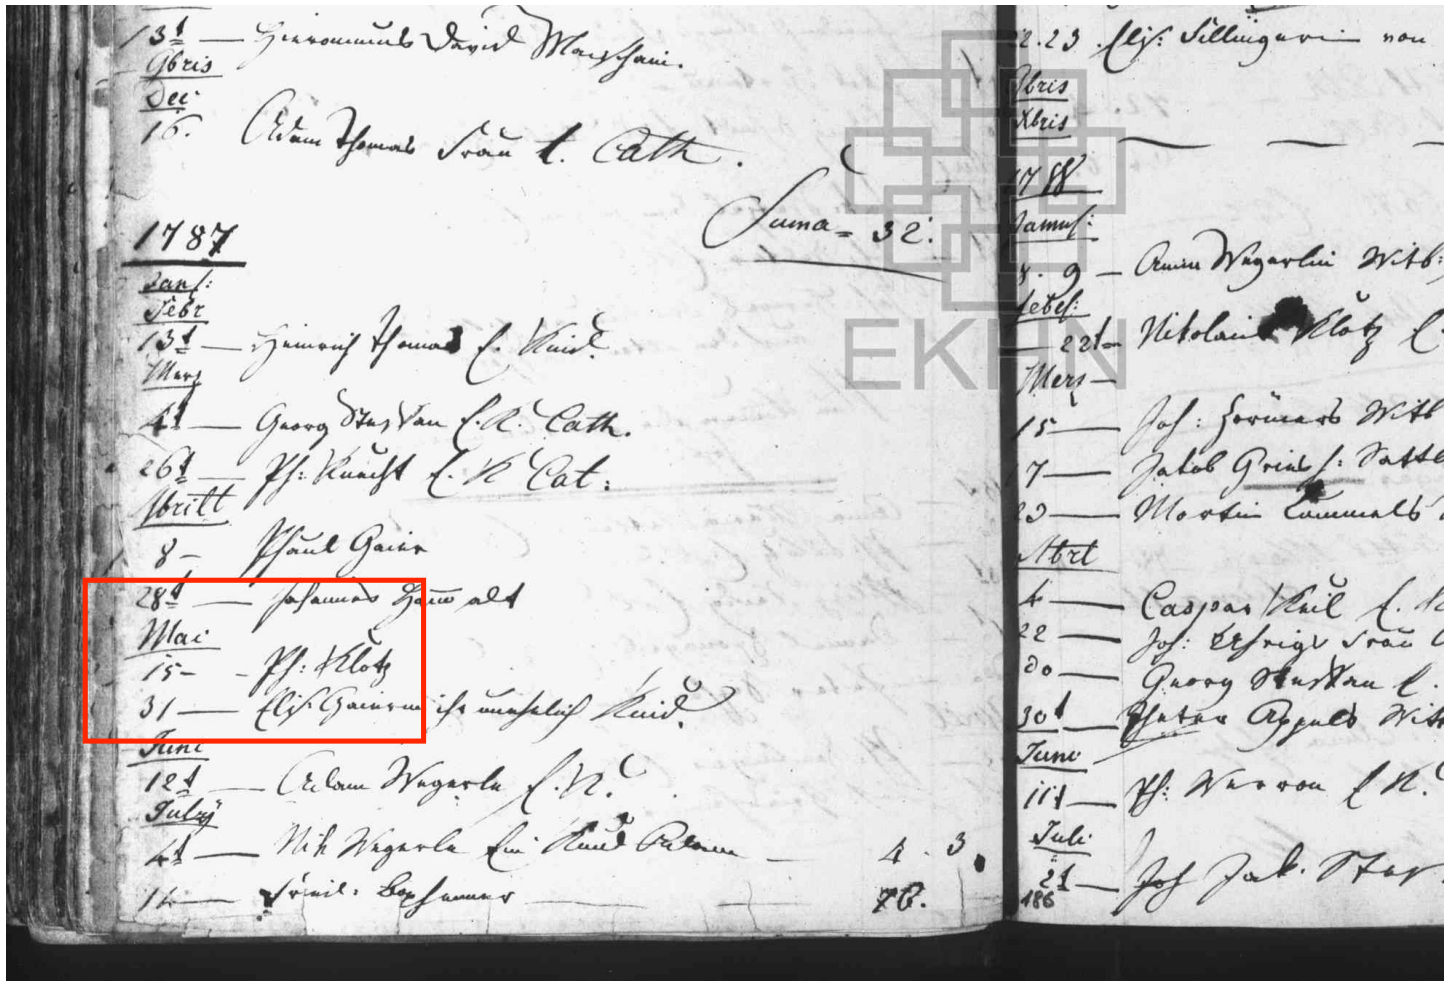 13t — Hieromimus David
9bris
Dec:
16. Adam Thomas Frau t. Cath.
Suma = 32.
1787
Jan:
Febr
13t — Heinrich Thomas E. Kind.
Merz
4t — Georg Stephan E. K. Cath.
26t — Ph: Knecht E. K Cat:
Abrill
8 – Phaul Geier
28t — Johannes Hamm alt
Mai
15 – - Ph: Klotz
31 — Elis: Geierin ihr unehelich Kind.
Juni
12t — Adam Wegerle E. K.
July
4t — Nik Wegerle Ein Kind Adam — 4 . 3
14 — Frid:
76.
22.23. Elis: Sillingerin von
9bris
Xbris
1788
Januf:
8. 9 – Wegerlin Witb:
Feber:
22t – Nikolaus Klotz E
Merz –
15 — Joh: Witb
17 — Jakob
23 — Martin Lammels
Abrl
4 — Caspar Keil E. K
22 — Joh: Frau
30 — Georg Stephan E.
30t — Pheter Appels Witb
Juni
11t — Ph: E K.
Juli
2t — Joh Jak.
186
EKHN